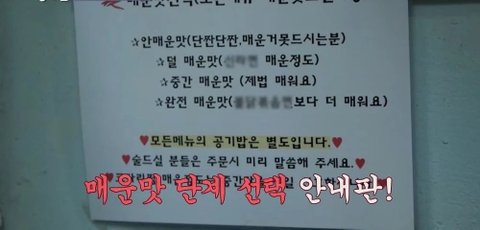 매운맛선택
☆안매운맛(단짠단짠,매운거못드시는분)
☆덜 매운맛( 매운정도)
☆중간 매운맛 (제법 매워요)
☆완전 매운맛( 보다 더 매워요)
♥모든메뉴의 공기밥은 별도입니다.♥
♥술드실 분들은 주문시 미리 말씀해 주세요.♥
매운맛 단계 선택 안내판!